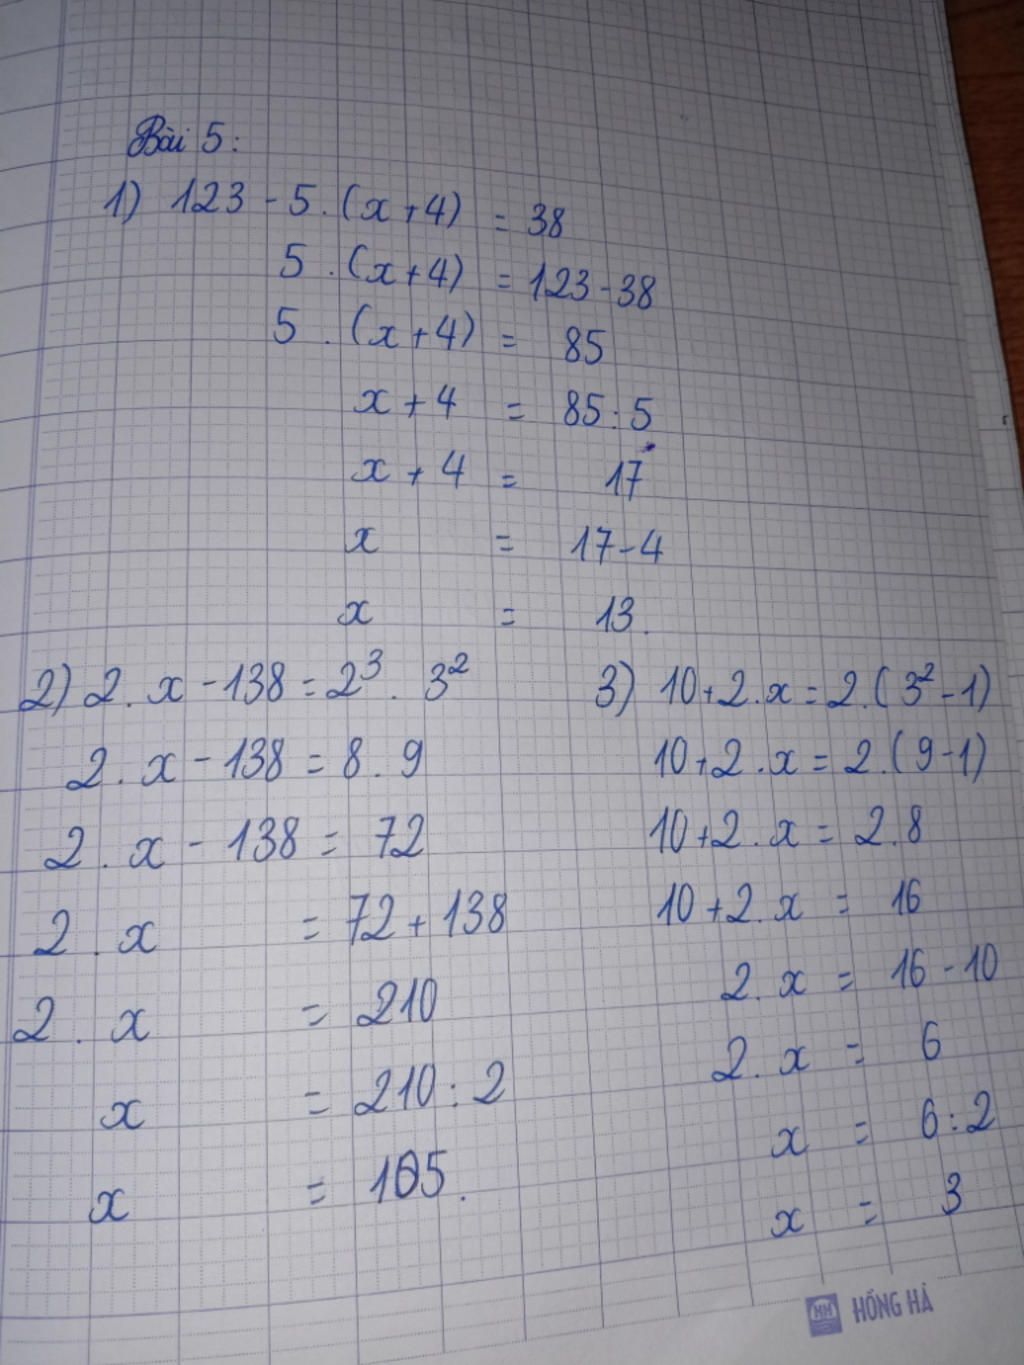 Bài 5:
1) 123 - 5 . (x + 4) = 38
5 . (x + 4) = 123 - 38
5 . (x + 4) = 85
x + 4 = 85 : 5
x + 4 = 17
x = 17 - 4
x = 13.
2) 2 . x - 138 = 2³ . 3²
2 . x - 138 = 8 . 9
2 . x - 138 = 72
2 . x = 72 + 138
2 . x = 210
x = 210 : 2
x = 105.
3) 10 + 2 . x = 2 . (3² - 1)
10 + 2 . x = 2 . (9 - 1)
10 + 2 . x = 2 . 8
10 + 2 . x = 16
2 . x = 16 - 10
2 . x = 6
x = 6 : 2
x = 3
HH HỒNG HÀ